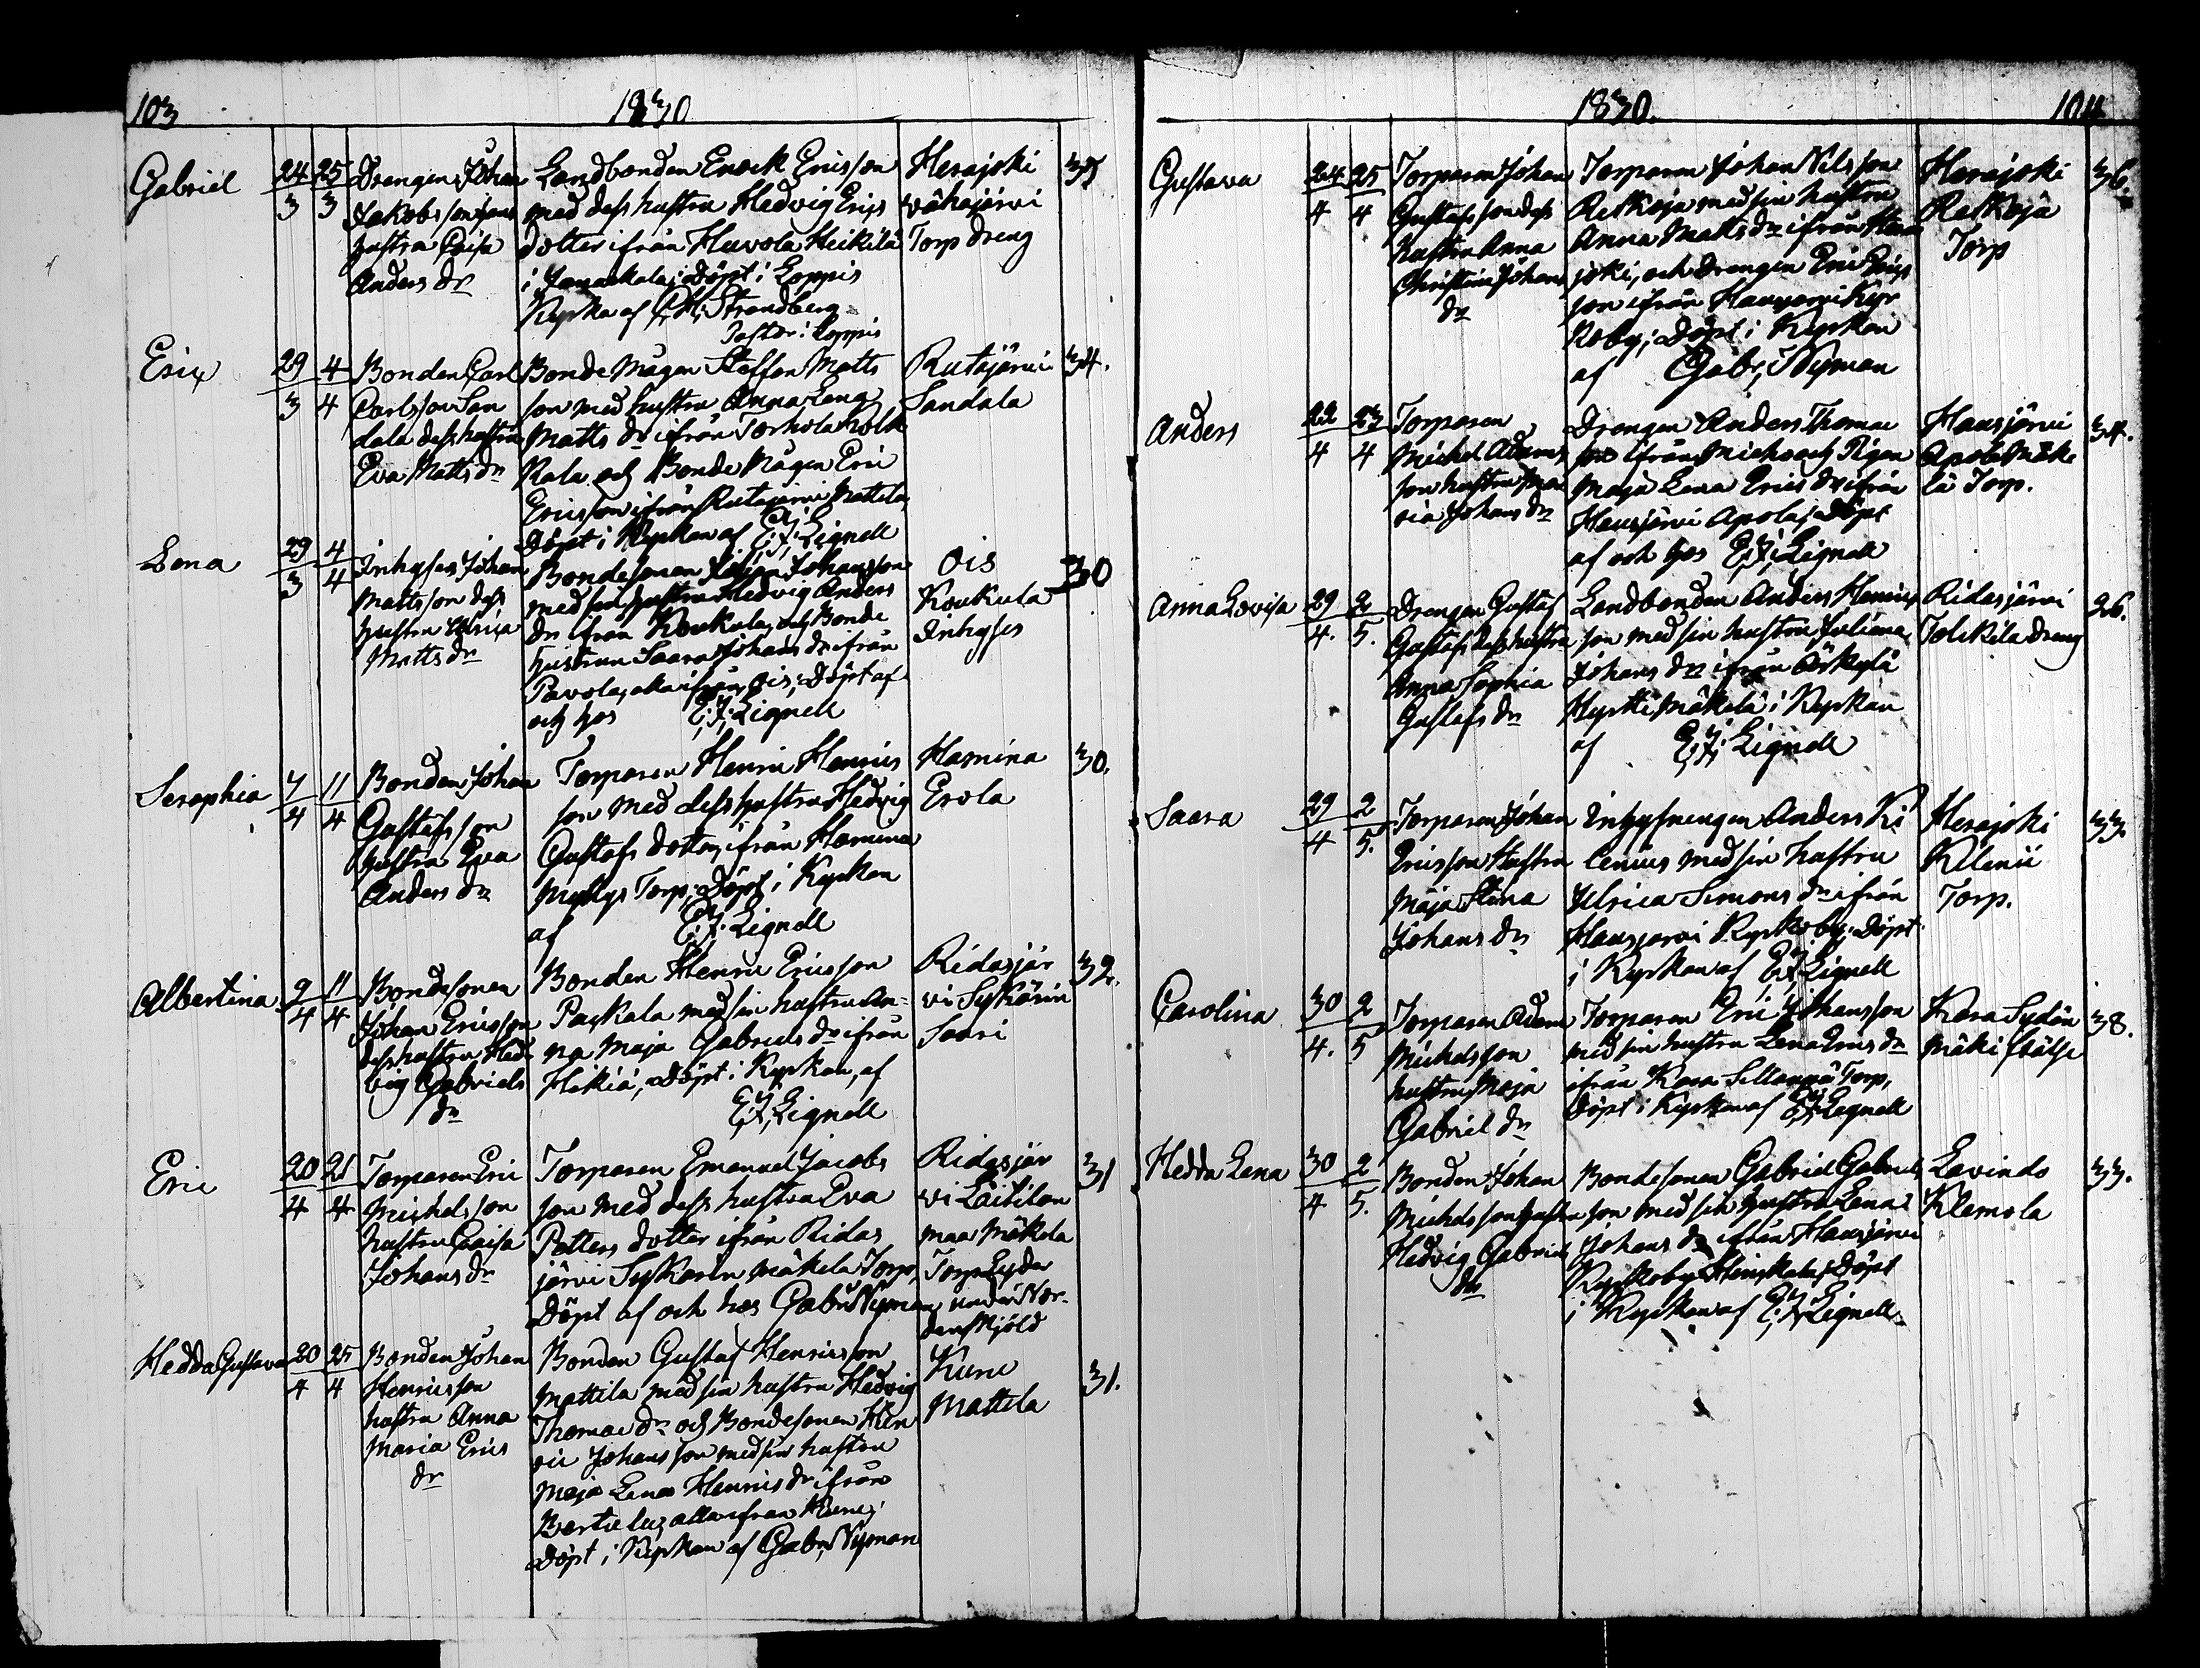 103 1830
Gabriel 24/3 25/3 Drengen Johan Landbonden Enock Ericsson Herajoki 35
Jakobsson dess med dess hustru Hedvig Erics wähäjärvi
hustru Caisa dotter ifrån Huvola Heikilä Torp dreng
Anders dr i Janakala; Döpt i Loppis
Kyrka af C. H. Strandberg
Pastor i Loppis
Eric 29/3 4/4 Bonden Carl Bonde Mågen Steffan Matts Rutajärvi 34.
Carlsson San son med hustru Anna Lena Sandala
dala dess hustru Matts dr ifrån Torhola
Eva Matts dr Kala och Bonde Mågen Eric
Ericsson ifrån Rutajärvi Mattila
Döpt i Kyrkan af E. J. Lignell
Lena 29/3 4/4 Inhyses Johan Bondesonen Johan Johansson Ois 30
Mattsson dess med sin hustru Hedvig Anders Koukula
hustru Ulrica dr ifrån Koukula, och Bonde Inhyses
Matts dr hustrun Saara Johans dr ifrån
Pavola, alla ifrån Ois; Döpt af
och hos E. J. Lignell
Seraphia 7/4 11/4 Bonden Johan Torparen Henric Henrics Hamina 30.
Gustafsson son med dess hustru Hedvig Erola
hustru Eva Gustafs dotter, ifrån Hamina
Anders dr Myllys Torp; Döpt i Kyrkan
af E. J. Lignell
Albertina 9/4 11/4 Bondesonen Bonden Henric Ericsson Ridasjär 32.
Johan Ericsson Packala med sin hustru An- vi Sykärin
dess hustru Hed na Maja Gabriels dr ifrån Saari
vig Gabriels Hikiä, Döpt i Kyrkan, af
dr E. J. Lignell
Eric 20/4 21/4 Torparen Eric Torparen Emanuel Jacobs Ridasjär 31
Michelsson son med dess hustru Eva vi Laitilan
hustru Caisa Petters dotter ifrån Ridas maa Mäkela
Johans dr järvi Sykärin mäkelä Torp, Torp Lyder
Döpt af och hos Gabr. Nyman under Nor-
denskjöld
Hedda Gustava 20/4 25/4 Bonden Johan Bonden Gustaf Henricsson Kuru 31.
Henricsson Mattila med sin hustru Hedvig Mattila
hustru Anna Thomae dr och Bondesonen Hen
Maria Erics ric Johansson med sin hustru
dr Maja Lena Henrics dr ifrån
alla ifrån
Döpt i Kyrkan af Gabr. Nyman
1830. 104
Gustava 24/4 25/4 Torparen Johan Torparen Johan Nilsson Herajoki 36.
Gustafsson dess Retkoja med sin hustru Retkoja
hustru Anna Anna Matts dr ifrån Hera Torp
Christina Johans joki, och Drengen Eric Erics
dr son ifrån Hausjärvi Kyr
koby; Döpt i Kyrkan
af Gabr. Nyman
Anders 22/4 23/4 Torparen Drengen Anders Thomae Hausjärvi 34.
Michel Adams son ifrån och Pigan Apola Mäke
son hustru Ma Maja Lena Erics dr ifrån lä Torp.
ria Johans dr Hausjärvi Apola; Döpt
af och hos E. J. Lignell
Anna Lovisa 29/4. 2/5. Drengen Gustaf Landbonden Anders Henrics Ridasjärvi 26.
Gustafs dess hustru son med sin hustru Juliana Tolkila dreng
Anna Sophia Johans dr ifrån
Gustafs dr Hyrtti Mäkelä i Kyrkan
af E. J. Lignell
Saara 29/4 2/5. Torparen Johan Inhysnengen Anders Ki Herajoki 33.
Ericsson Hustru lenius med sin hustru Kilenii
Maja Stina Ulrica Simons dr ifrån Torp.
Johans dr Hausjärvi Kyrkoby. Döpt
i Kyrkan af E. J. Lignell
Carolina 30/4. 2/5 Torparen Adam Torparen Eric Johansson Kara Sydän 38.
Michelsson med sin hustru Lena Erics dr mäki
hustru Maja ifrån Kara Sillanpä Torp,
Gabriel dr Döpt i Kyrkan af E. J. Lignell
Hedda Lena 30/4 2/5. Bonden Johan Bondesonen Gabriel Gabriels Lavindo 33.
Michelsson hustru son med sin hustru Lena Klemola
Hedvig Gabriels Johans dr ifrån Hausjärvi
dr Kyrkoby Döpt
i Kyrkan af E. J. Lignell